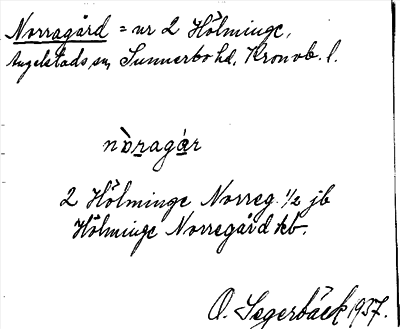 Norragård = nr 2 Hölminge,
Angelstads sn, Sunnerbo hd, Kronob. l.
nòragár
2 Hölminge Norreg. 1/2 jb
Hölminge Norregård kb.
O. Segerbäck 1937.